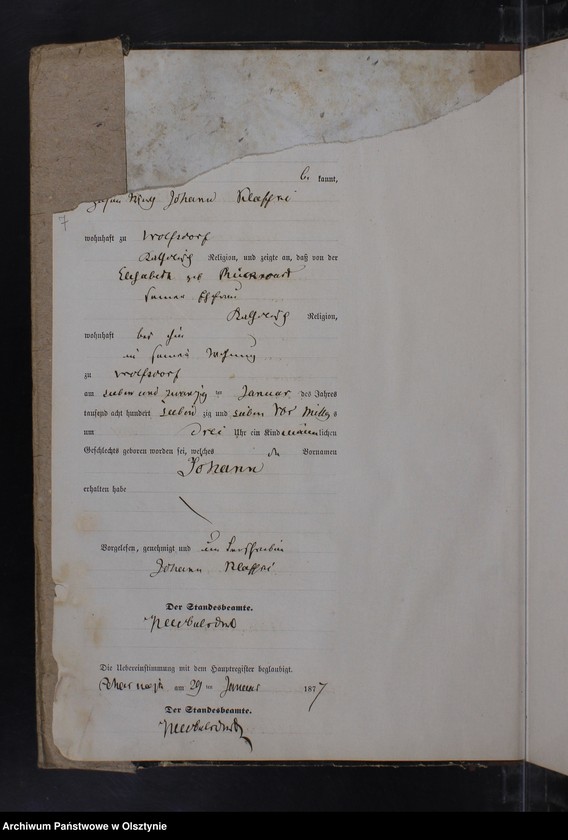 be kannt,
Johann Klaffki
7
wohnhaft zu Wolfsdorf
Katholisch Religion, und zeigte an, daß von der
Elisabeth geb Rückwart
seiner Ehefrau
Katholisch Religion,
wohnhaft bei ihm
in seiner Wohnung
zu Wolfsdorf
am sieben und zwanzig ten Januar des Jahres
tausend acht hundert sieben zig und sieben Vor Mittag s
um drei Uhr ein Kind männlichen
Geschlechts geboren worden sei, welches den Vornamen
Johann
erhalten habe
Vorgelesen, genehmigt und unterschrieben
Johann Klaffki
Der Standesbeamte.
Die Uebereinstimmung mit dem Hauptregister beglaubigt.
am 29 ten Januar 1877
Der Standesbeamte.
Archiwum Państwowe w Olsztynie